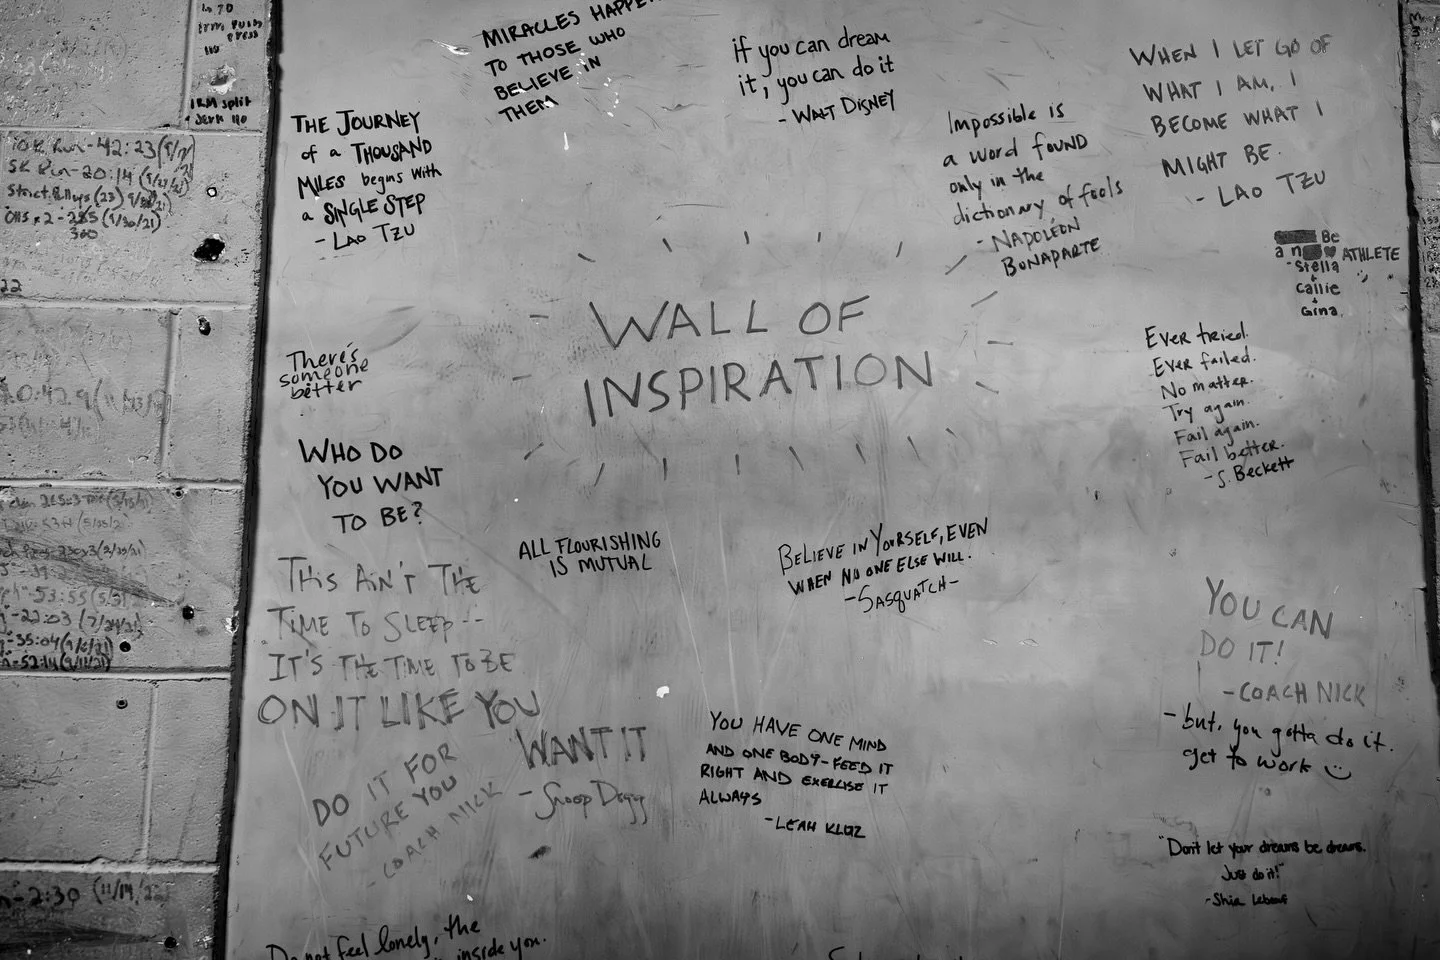 MIRACLES HAPPEN
TO THOSE WHO
BELIEVE IN
THEM
if you can dream
it, you can do it
- WALT DISNEY
WHEN I LET GO OF
WHAT I AM, I
BECOME WHAT I
MIGHT BE.
- LAO TZU
THE JOURNEY
of a THOUSAND
MILES begins with
a SINGLE STEP
- LAO TZU
Impossible is
a word found
only in the
dictionary of fools
- NAPOLEON
BONAPARTE
Be
a n ATHLETE
- Stella
+
Callie
+
Gina
WALL OF
INSPIRATION
There's
someone
better
Ever tried.
Ever failed.
No matter.
Try again.
Fail again.
Fail better.
- S. Beckett
WHO DO
YOU WANT
TO BE?
ALL FLOURISHING
IS MUTUAL
BELIEVE IN YOURSELF, EVEN
WHEN NO ONE ELSE WILL.
- SASQUATCH -
THIS AIN'T THE
TIME TO SLEEP --
IT'S THE TIME TO BE
ON IT LIKE YOU
WANT IT
- Snoop Dogg
YOU CAN
DO IT!
- COACH NICK
- but, you gotta do it.
get to work
DO IT FOR
FUTURE YOU
- COACH NICK
YOU HAVE ONE MIND
AND ONE BODY - FEED IT
RIGHT AND EXERCISE IT
ALWAYS
- LEAH KLOZ
"Don't let your dreams be dreams.
Just do it!"
- Shia Lebeouf
Do not feel lonely, the
inside you.
1RM Push
Press
110
1RM split
Jerk 110
10K Run - 42:23
5K Run - 20:14
Strict Pullups (23)
300
- 53:55
- 22:03
- 35:04
- 52:14 (9/11/21)
- 2:30 (11/14/